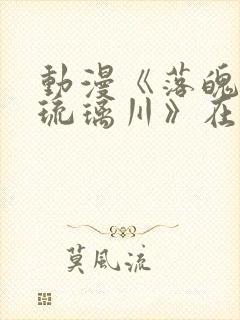 動漫《落魄
琉璃川》在
莫風流